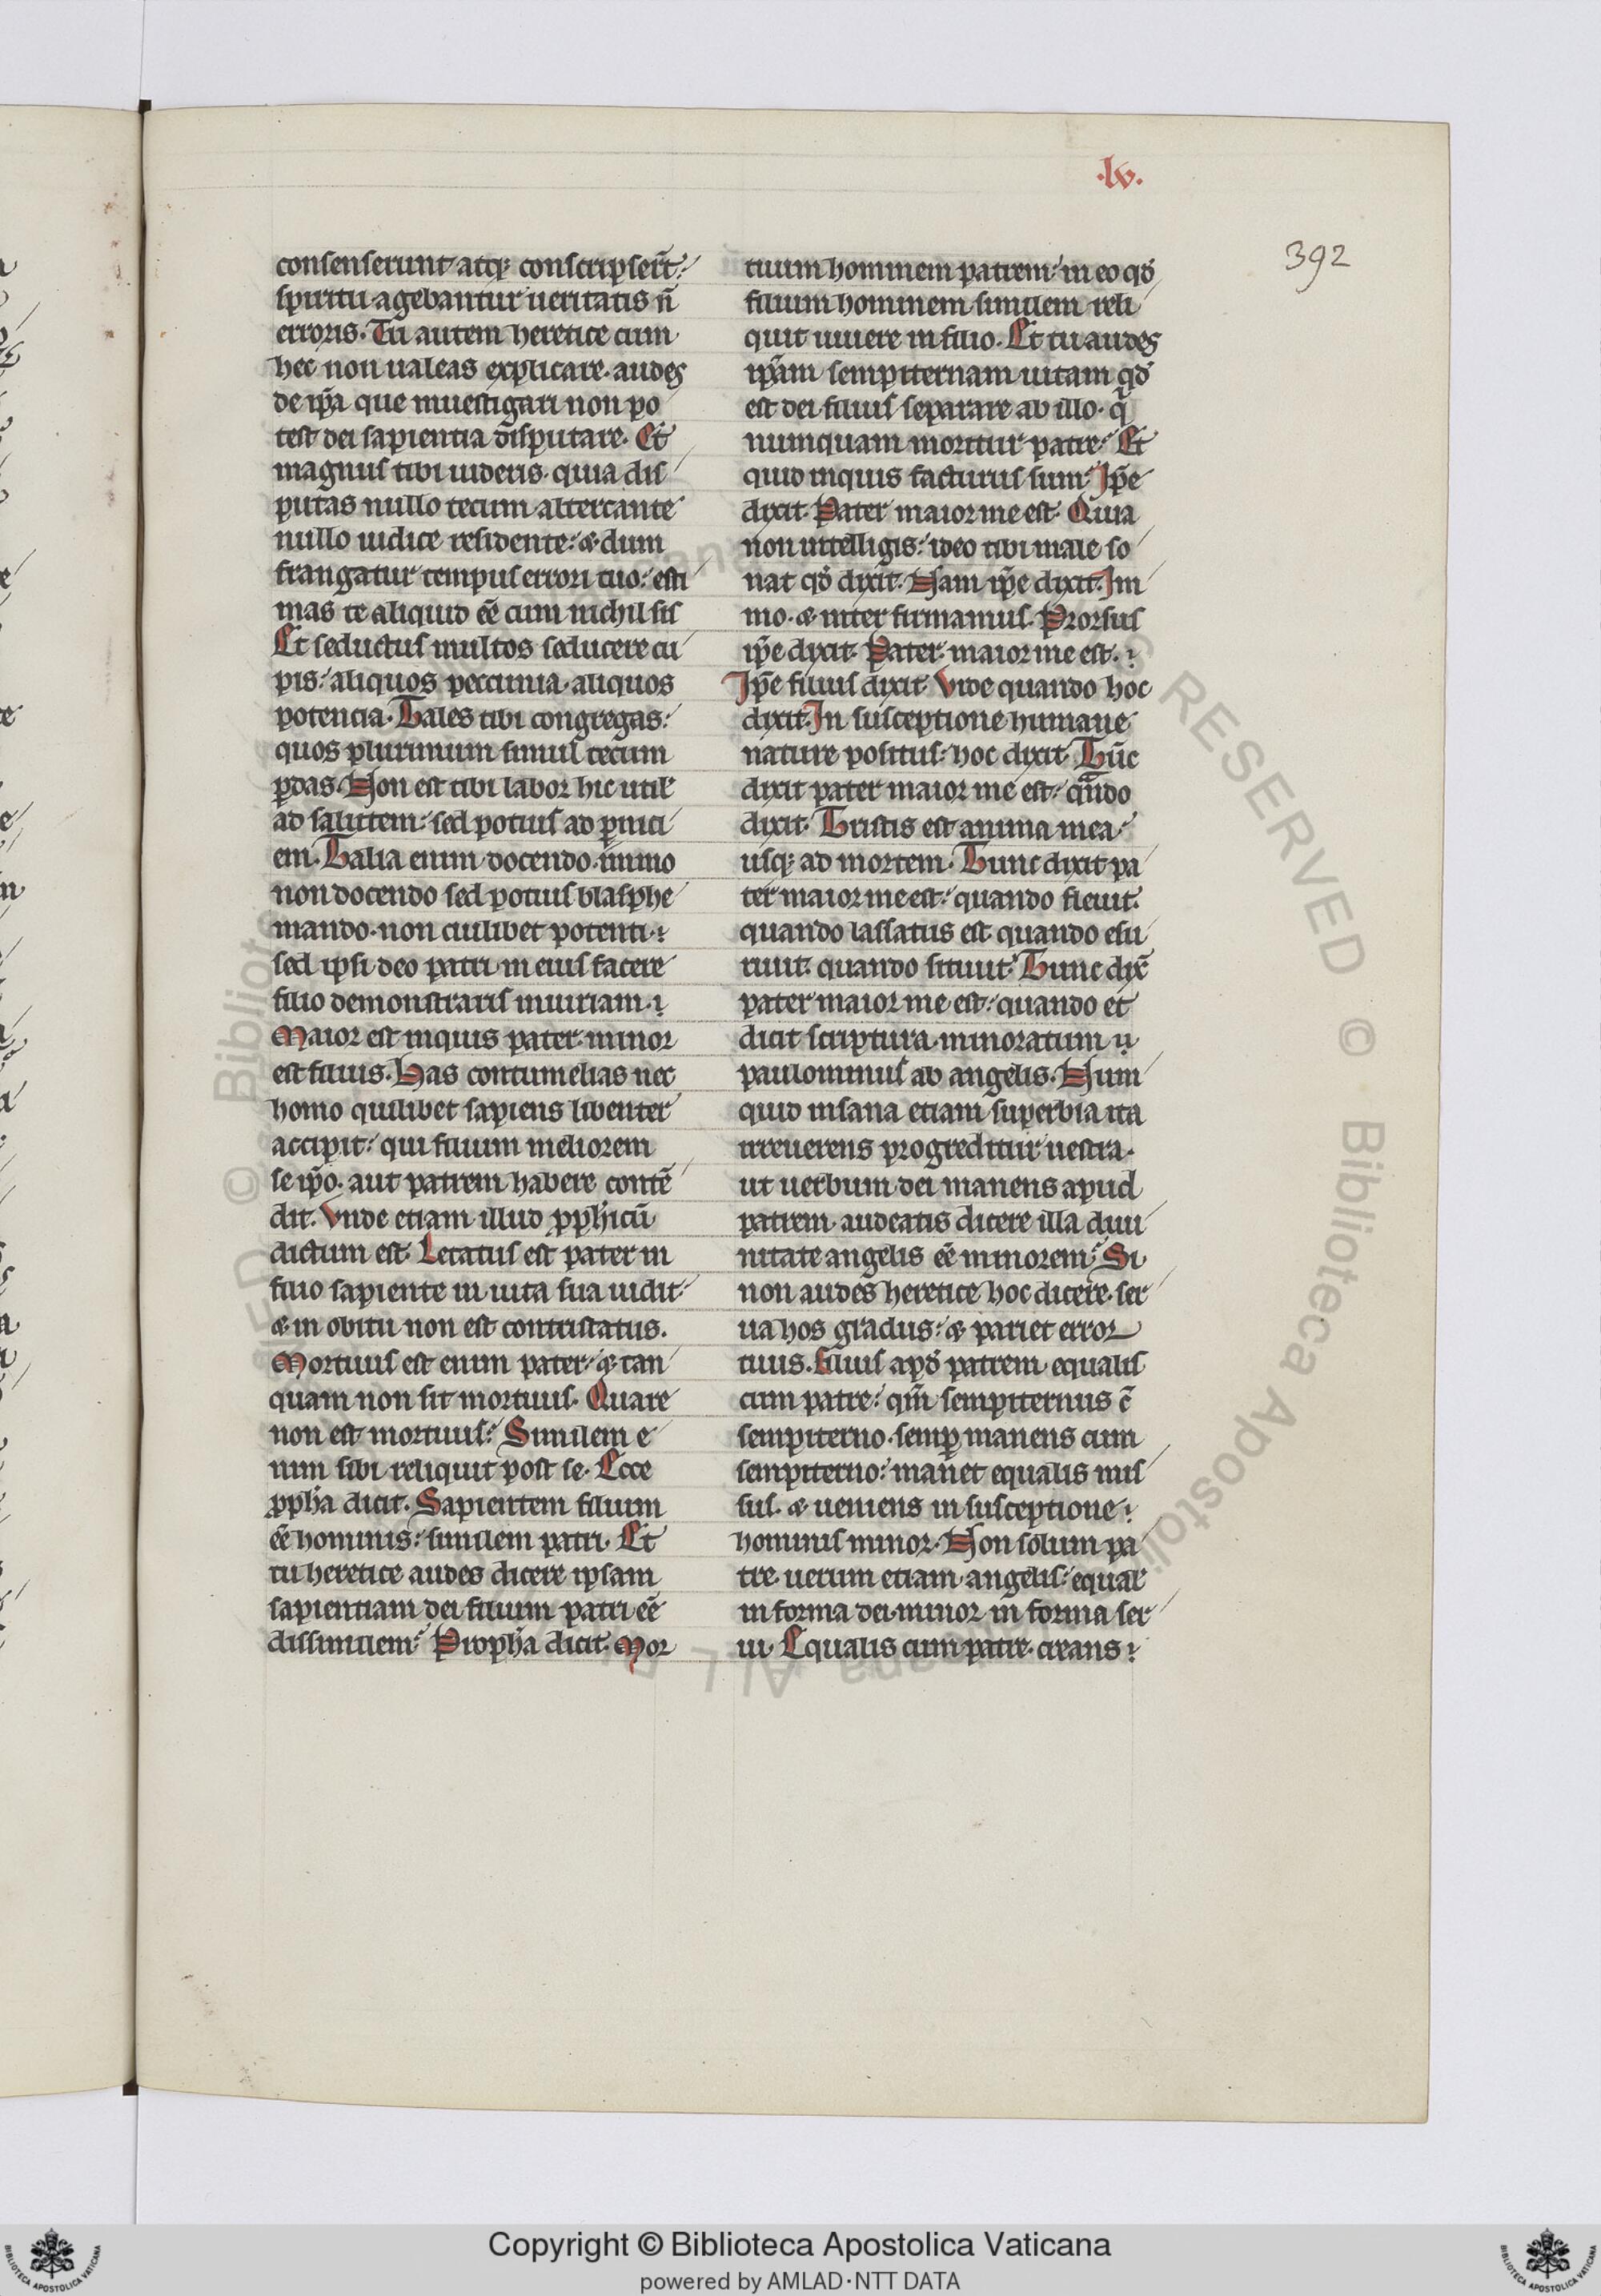 .lv.
392
consenserunt atq; conscripser̃t:
spiritu agebantur ueritatis ñ
erroris. Tu autem heretice cum
hec non ualeas explicare. audes
de ip̃a que inuestigari non po
test dei sapientia disputare. Et
magnus tibi uideris. quia dis
putas nullo tecum altercante
nullo iudice residente: & dum
frangatur tempus errori tuo: esti
mas te aliquid eẽ cum nichil sis
Et seductus multos seducere cu
pis: aliquos peccunia. aliquos
potencia. Tales tibi congregas:
quos plurimum simul tecum
ꝑdas. Non est tibi labor hic util'
ad salutem: sed potius ad ꝑnici
em. Talia enim docendo. immo
non docendo sed potius blasphe
mando. non cuilibet potenti.
sed ipsi deo patri in eius facere
filio demonstraris iniuriam.
Maior est inquis pater. minor
est filius. Has contumelias nec
homo quilibet sapiens libenter
accipit: qui filium meliorem
se ip̃o. aut patrem habere contẽ
dit. Vnde etiam illud ꝓph̃icũ
dictum est. Letatus est pater in
filio sapiente in uita sua uidit:
& in obitu non est contristatus.
Mortuus est enim pater: & tan
quam non sit mortuus. Quare
non est mortuus: Similem e
nim sibi reliquit post se. Ecce
ꝓph̃a dicit. Sapientem filium
eẽ hominis: similem patri. Et
tu heretice audes dicere ipsam
sapientiam dei filium patri eẽ
dissimilem: Proph̃a dicit. Mor
tuum hominem patrem: in eo qd̃
filium hominem similem reli
quit uiuere in filio. Et tu audes
ip̃am sempiternam uitam qd̃
est dei filius separare ab illo. q̃
numquam moritur patre: Et
quid inquis facturus sum: Ip̃e
dixit. Pater maior me est. Quia
non intelligis: ideo tibi male so
nat qd̃ dixit. Nam ip̃e dixit. Im
mo. & inter firmamus. Prorsus
ip̃e dixit. Pater maior me est.
Ip̃e filius dixit. Vide quando hoc
dixit. In susceptione humane
nature positus: hoc dixit. Tũc
dixit pater maior me est: qñdo
dixit. Tristis est anima mea:
usq; ad mortem. Tunc dixit pa
ter maior me est: quando fleuit.
quando lassatus est. quando esu
riuit. quando sitiuit. Tunc dix̃
pater maior me est: quando et
dicit scriptura. minoratum
paulominus ab angelis. Num
quid insana etiam superbia ita
irreuerens progreditur uestra.
ut uerbum dei manens apud
patrem. audeatis dicere illa diui
nitate angelis eẽ minorem: Si
non audes heretice hoc dicere. ser
ua hos gradus: & pariet error
tuus. Filius apd̃ patrem equalis
cum patre: qm̃ sempiternus ẽ
sempiterno. semꝑ manens cum
sempiterno: manet equalis mis
sus. & ueniens in susceptione
hominis minor. Non solum pa
tre. uerum etiam angelis: equal'
in forma dei. minor in forma ser
ui. Equalis cum patre. creans
© Biblioteca Apostolica Vaticana ALL RIGHTS RESERVED
Copyright © Biblioteca Apostolica Vaticana
powered by AMLAD·NTT DATA
BIBLIOTECA APOSTOLICA VATICANA
BIBLIOTECA APOSTOLICA VATICANA